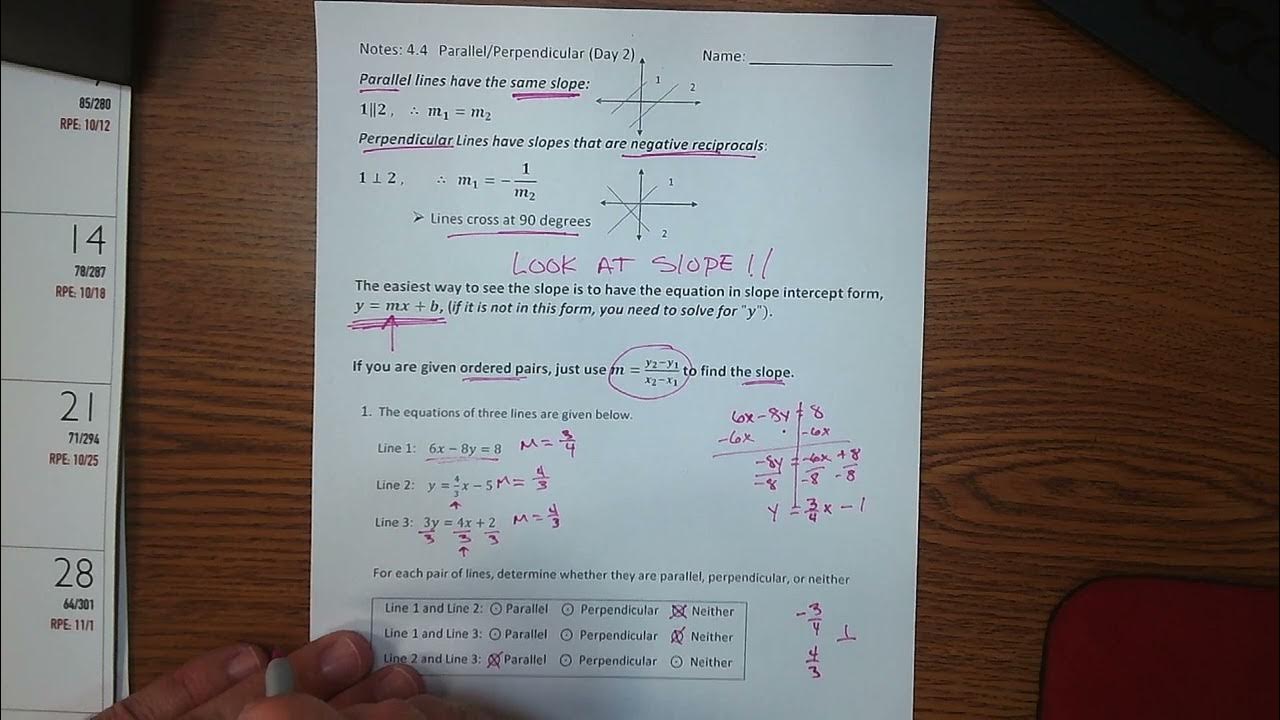 85/280
RPE: 10/12
14
78/287
RPE: 10/18
21
71/294
RPE: 10/25
28
64/301
RPE: 11/1
Notes: 4.4 Parallel/Perpendicular (Day 2) Name:
Parallel lines have the same slope:
1 2
1||2 , ∴ m₁ = m₂
Perpendicular Lines have slopes that are negative reciprocals:
1 ⊥ 2 , ∴ m₁ = −1/m₂
1
➤ Lines cross at 90 degrees
2
LOOK AT SLOPE !!
The easiest way to see the slope is to have the equation in slope intercept form,
y = mx + b, (if it is not in this form, you need to solve for "y").
If you are given ordered pairs, just use m = (y₂−y₁)/(x₂−x₁) to find the slope.
1. The equations of three lines are given below.
Line 1: 6x − 8y = 8 M = 3/4
Line 2: y = 4/3 x − 5 M = 4/3
Line 3: 3y = 4x + 2 M = 4/3
3 3 3
6x − 8y = 8
−6x −6x
−8y = −6x + 8
−8 −8 −8
y = 3/4 x − 1
For each pair of lines, determine whether they are parallel, perpendicular, or neither
Line 1 and Line 2: ⊙ Parallel ⊙ Perpendicular ⊗ Neither
Line 1 and Line 3: ⊙ Parallel ⊙ Perpendicular ⊗ Neither
Line 2 and Line 3: ⊗ Parallel ⊙ Perpendicular ⊙ Neither
−3/4
⊥
4/3